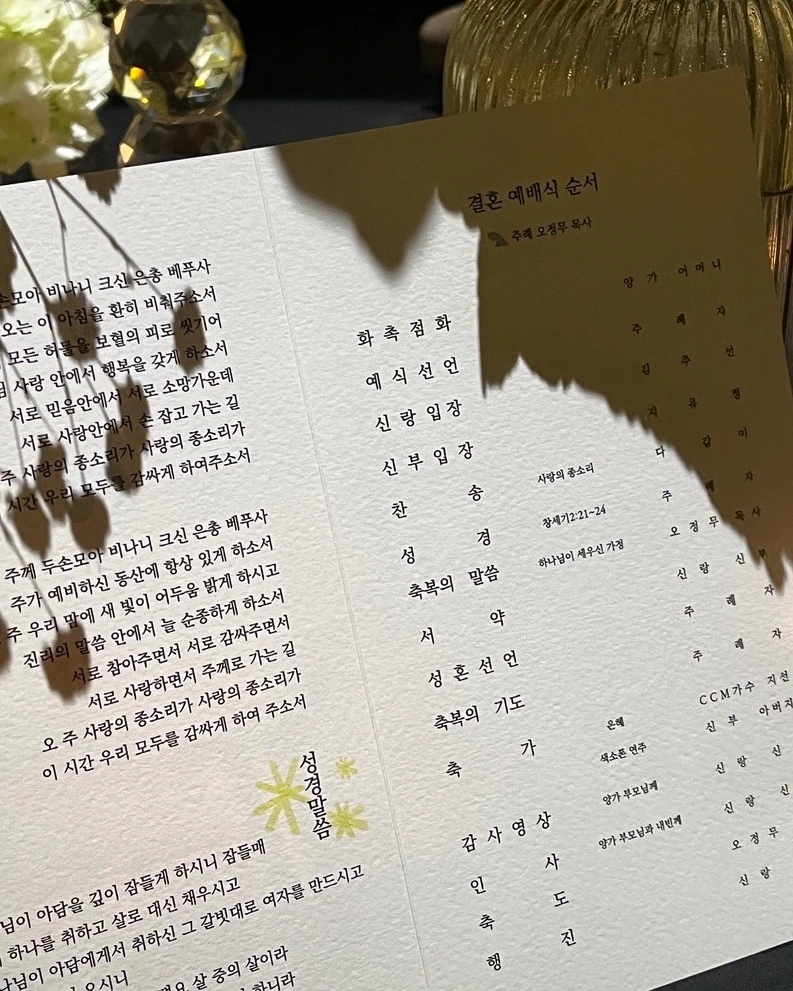 두손모아 비나니 크신 은총 베푸사
오는 이 아침을 환히 비춰주소서
모든 허물을 보혈의 피로 씻기어
사랑 안에서 행복을 갖게 하소서
서로 믿음안에서 서로 소망가운데
서로 사랑안에서 손 잡고 가는 길
주 사랑의 종소리가 사랑의 종소리가
시간 우리 모두를 감싸게 하여주소서
주께 두손모아 비나니 크신 은총 베푸사
주가 예비하신 동산에 항상 있게 하소서
주 우리 맘에 새 빛이 어두움 밝게 하시고
진리의 말씀 안에서 늘 순종하게 하소서
서로 참아주면서 서로 감싸주면서
서로 사랑하면서 주께로 가는 길
오 주 사랑의 종소리가 사랑의 종소리가
이 시간 우리 모두를 감싸게 하여 주소서
성경말씀
아담을 깊이 잠들게 하시니 잠들매
하나를 취하고 살로 대신 채우시고
아담에게서 취하신 그 갈빗대로 여자를 만드시고
오시니
살 중의 살이라
하니라
결혼 예배식 순서
주례 오정무 목사
화촉점화 양가 어머니
예식선언 주례자
신랑입장 김주선
신부입장 지유정
찬송 사랑의 종소리 다같이
성경 창세기2:21~24 주례자
축복의 말씀 하나님이 세우신 가정 오정무 목사
서약 신랑 신부
성혼선언 주례자
축복의 기도 주례자
축가 은혜 CCM가수 지선
색소폰 연주 신부 아버지
감사영상 양가 부모님께 신랑 신
인사 양가 부모님과 내빈께 신랑 신
축도 오정무
행진 신랑